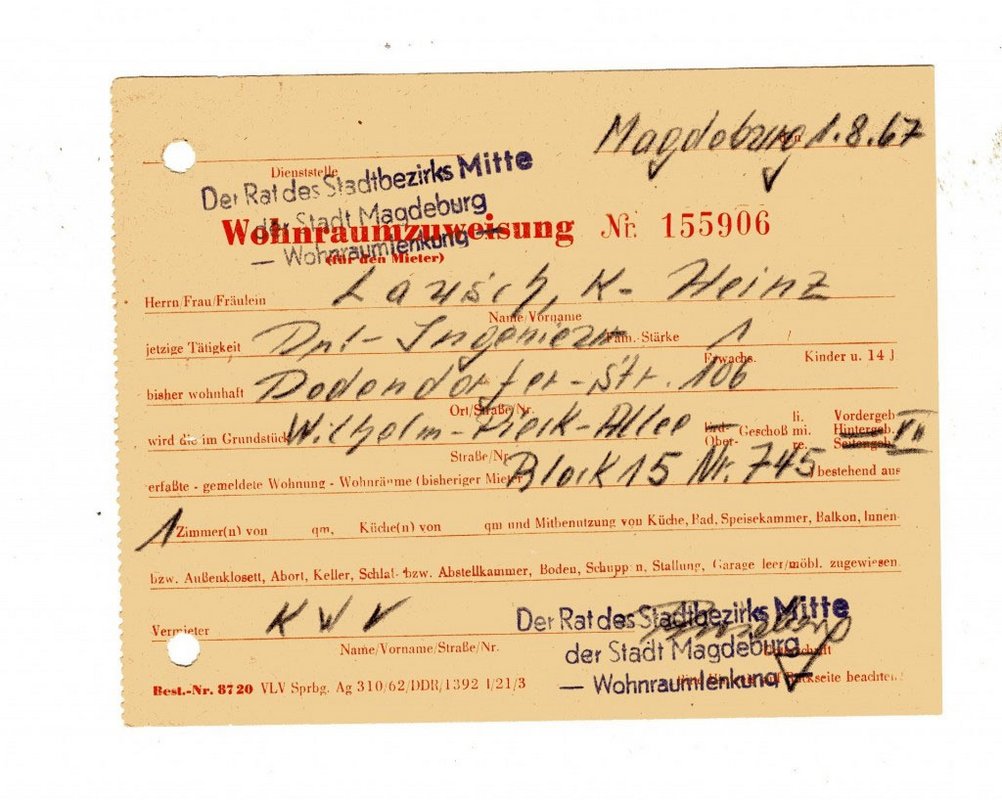 Magdeburg, den 1.8.67
Dienststelle
Der Rat des Stadtbezirks Mitte
der Stadt Magdeburg
— Wohnraumlenkung —
Wohnraumzuweisung Nr. 155906
(für den Mieter)
Herrn/Frau/Fräulein Lausch, K- Heinz
Name/Vorname
jetzige Tätigkeit Dpl-Ingenieur Fam. Stärke 1 /
Erwachs. Kinder u. 14 J
bisher wohnhaft Dodendorfer-Str. 106
Ort/Straße/Nr.
wird die im Grundstück Wilhelm-Pieck-Allee Erd- Ober- Geschoß li. mi. re. Vordergeb. Hintergeb. Seitengeb. VII
Straße/Nr.
erfaßte - gemeldete Wohnung - Wohnräume (bisheriger Mieter Block 15 Nr. 745 bestehend aus
1 Zimmer(n) von qm, Küche(n) von qm und Mitbenutzung von Küche, Bad, Speisekammer, Balkon, Innen-
bzw. Außenklosett, Abort, Keller, Schlaf- bzw. Abstellkammer, Boden, Schuppen, Stallung, Garage leer/möbl. zugewiesen.
Vermieter K W V
Name/Vorname/Straße/Nr.
Der Rat des Stadtbezirks Mitte
der Stadt Magdeburg
— Wohnraumlenkung
Unterschrift
Rückseite beachten!
Best.-Nr. 8720 VLV Sprbg. Ag 310/62/DDR/1392 1/21/3